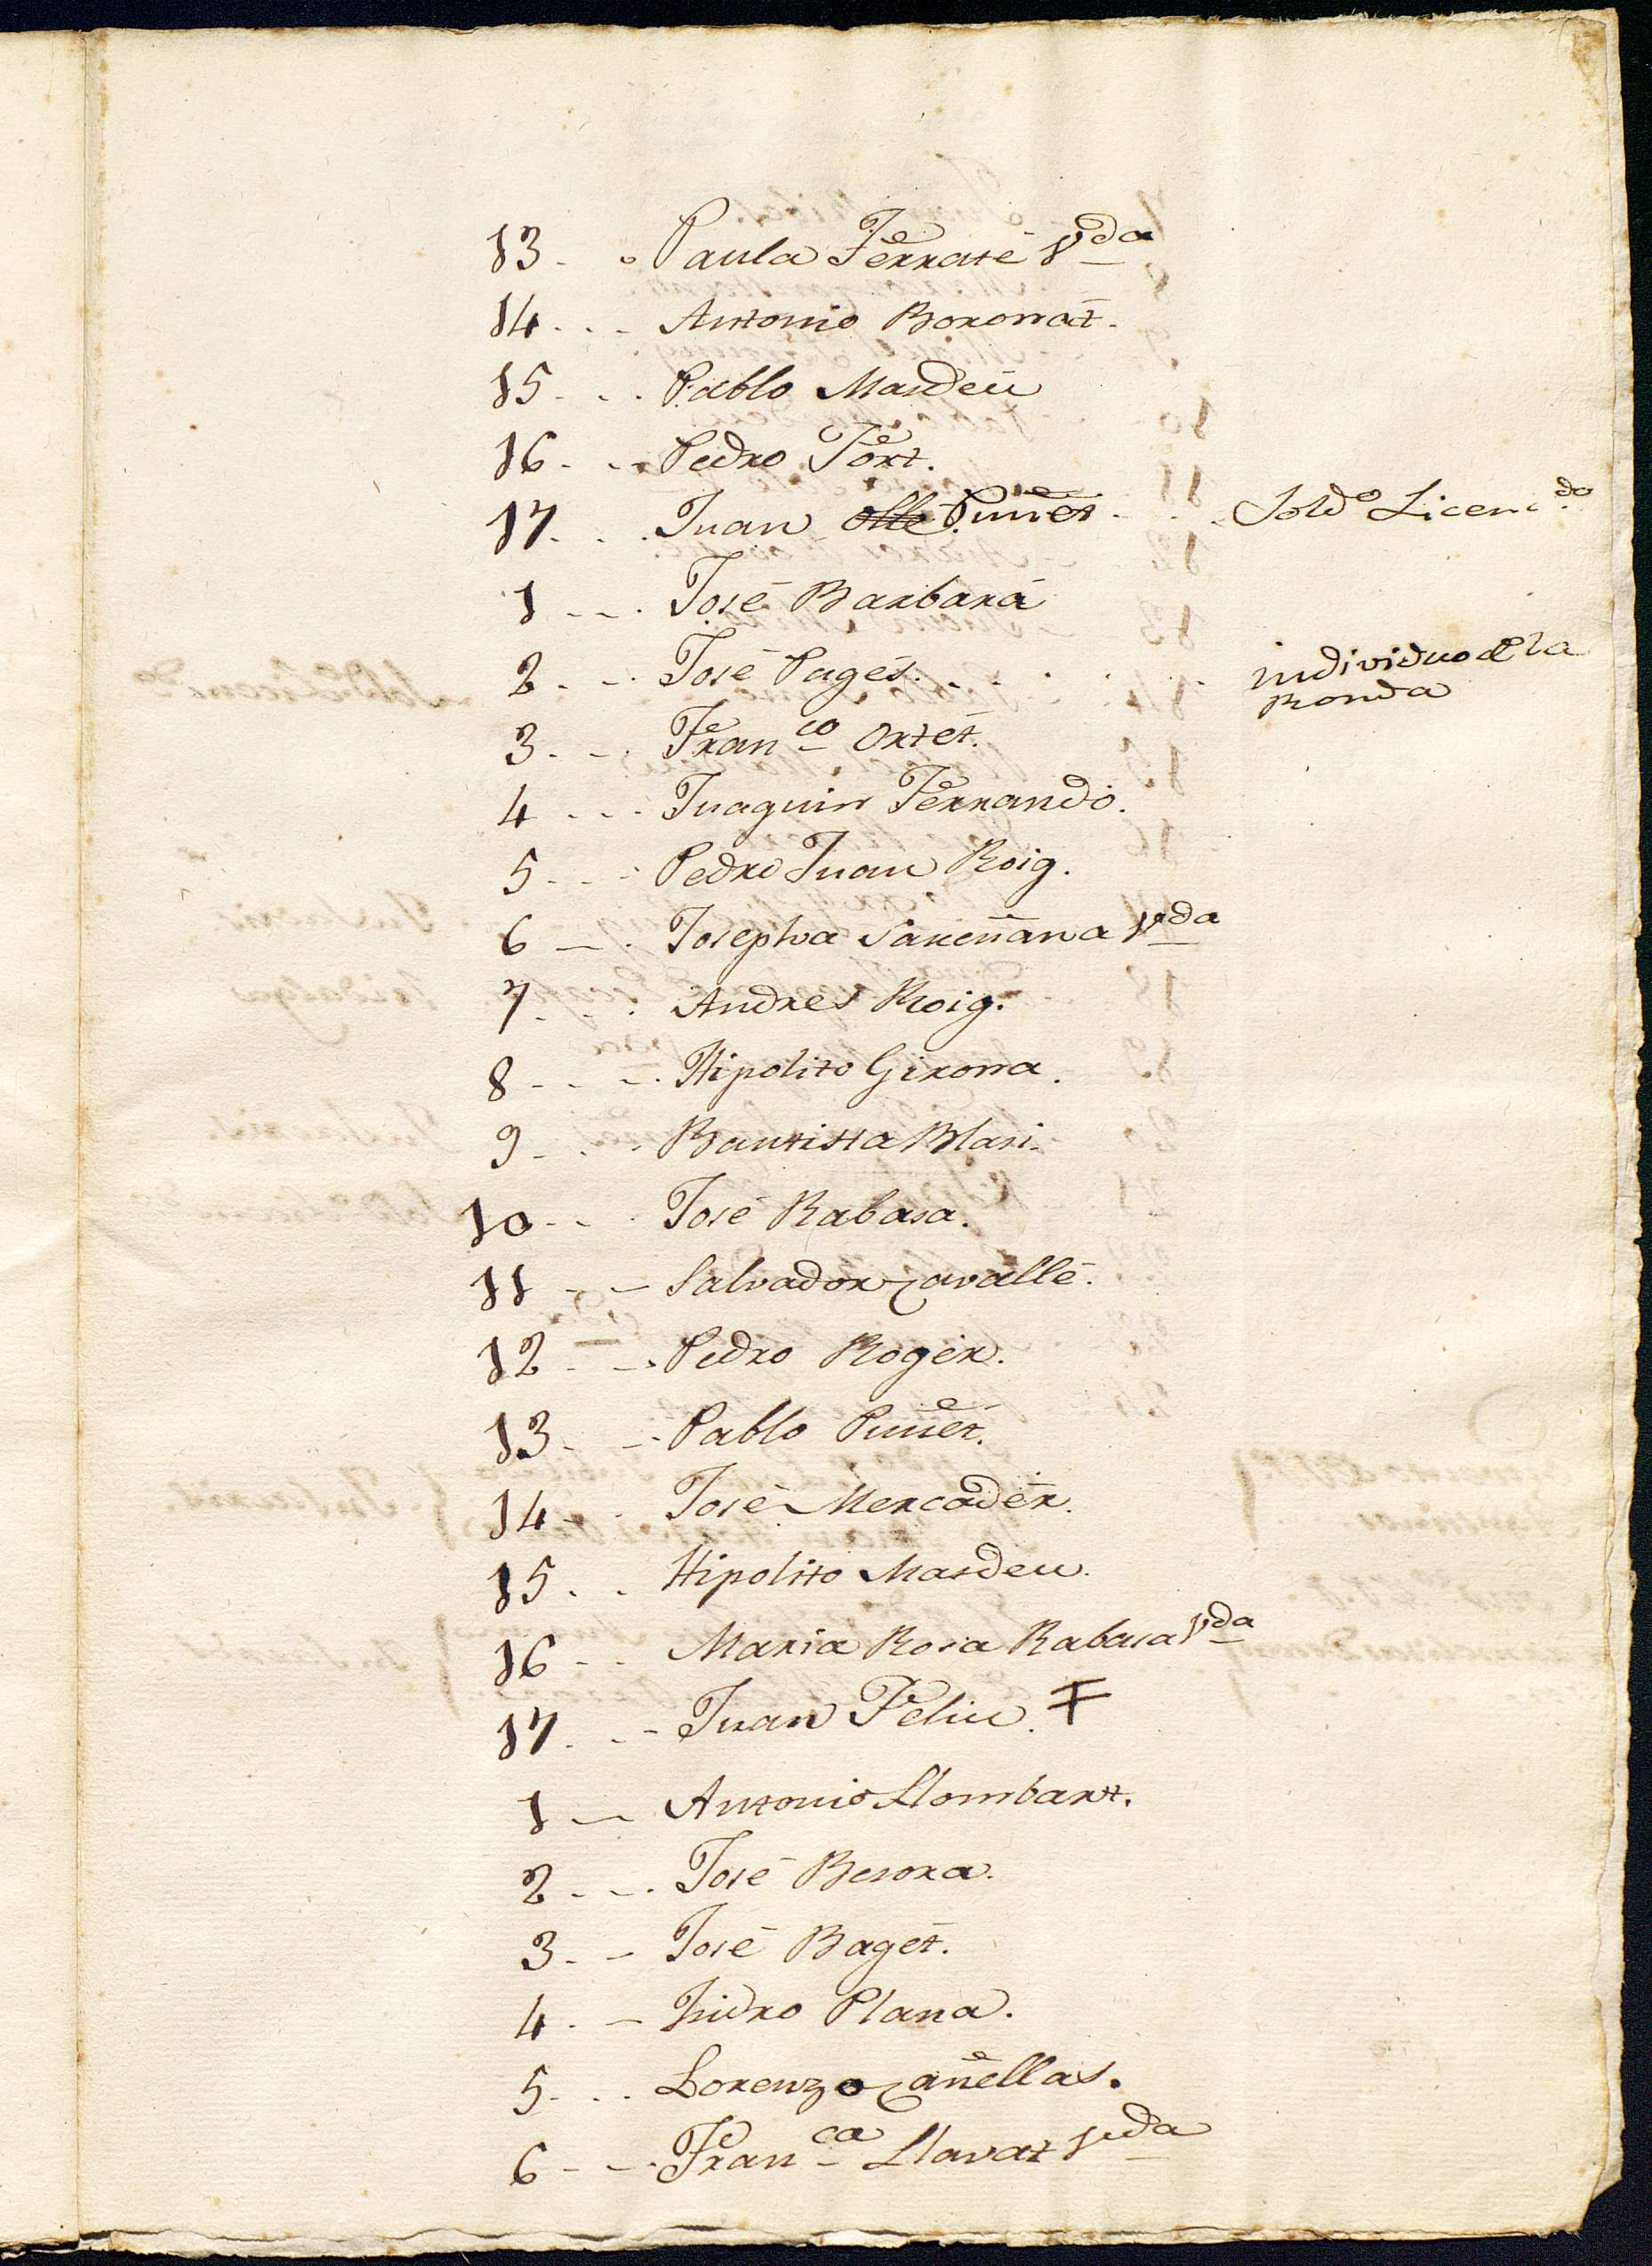 13 - . Paula Ferraté Vda
14 . . - Antonio Boronat.
15 . . Pablo Masdeu
16 . . Pedro Fort.
17 . . Juan Olle Puñet . . Soldo Licencdo
1 - - . José Barbará
2 . - . José Pagés. . . . . . individuo de la
Ronda
3 . - . Franco Ortét.
4 . . . Juaquin Ferrando.
5 . - - Pedro Juan Roig.
6 - . Josepha Sareñana Vda
7 . . : Andres Roig.
8 - . - . Hipolito Girona.
9 - . . Bautista Blasi.
10 - . . José Rabasa.
11 - - Salvador Cavallé.
12 - - . Pedro Rogér.
13 - - . Pablo Puñet.
14 - . José Mercadér.
15 . . Hipolito Masdeu.
16 - . Maria Rosa Rabasa Vda
17 . . - Juan Feliu. Ŧ
1 - Antonio Llombart.
2 . - . José Besora.
3 . - José Baget.
4 . - Isidro Plana.
5 . . . Lorenzo Cañellas.
6 - - . Franca Llavat Vda